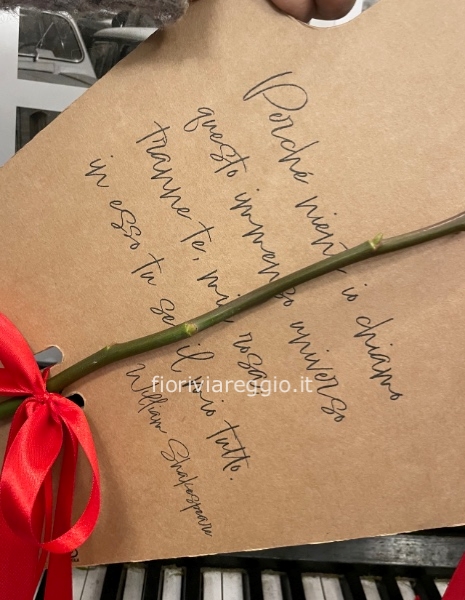 Perché niente io chiamo
questo immenso universo
tranne te, mia rosa:
in esso tu sei il mio tutto.
William Shakespeare
fioriviareggio.it